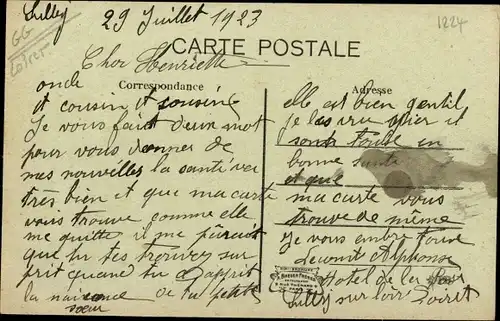 Lilly 29 Juillet 1923
1224
GG
Loiret
CARTE POSTALE
Cher Henriette
oncle
Correspondance
Adresse
et cousin et cousine
Je vous fait deux mot
pour vous donner de
mes nouvelles la santé va
très bien et que ma carte
vous trouve comme elle
me quitte il me paraît
que tu tes trouvez sur
prit quand tu a apprit
la naissance de la petite
sœur
elle est bien gentil
je les vu hier il
sont toute en
bonne santé
et que
ma carte vous
trouve de même
je vous embr toute
Alphonse
Hotel de la
Lilly sur loir Loiret